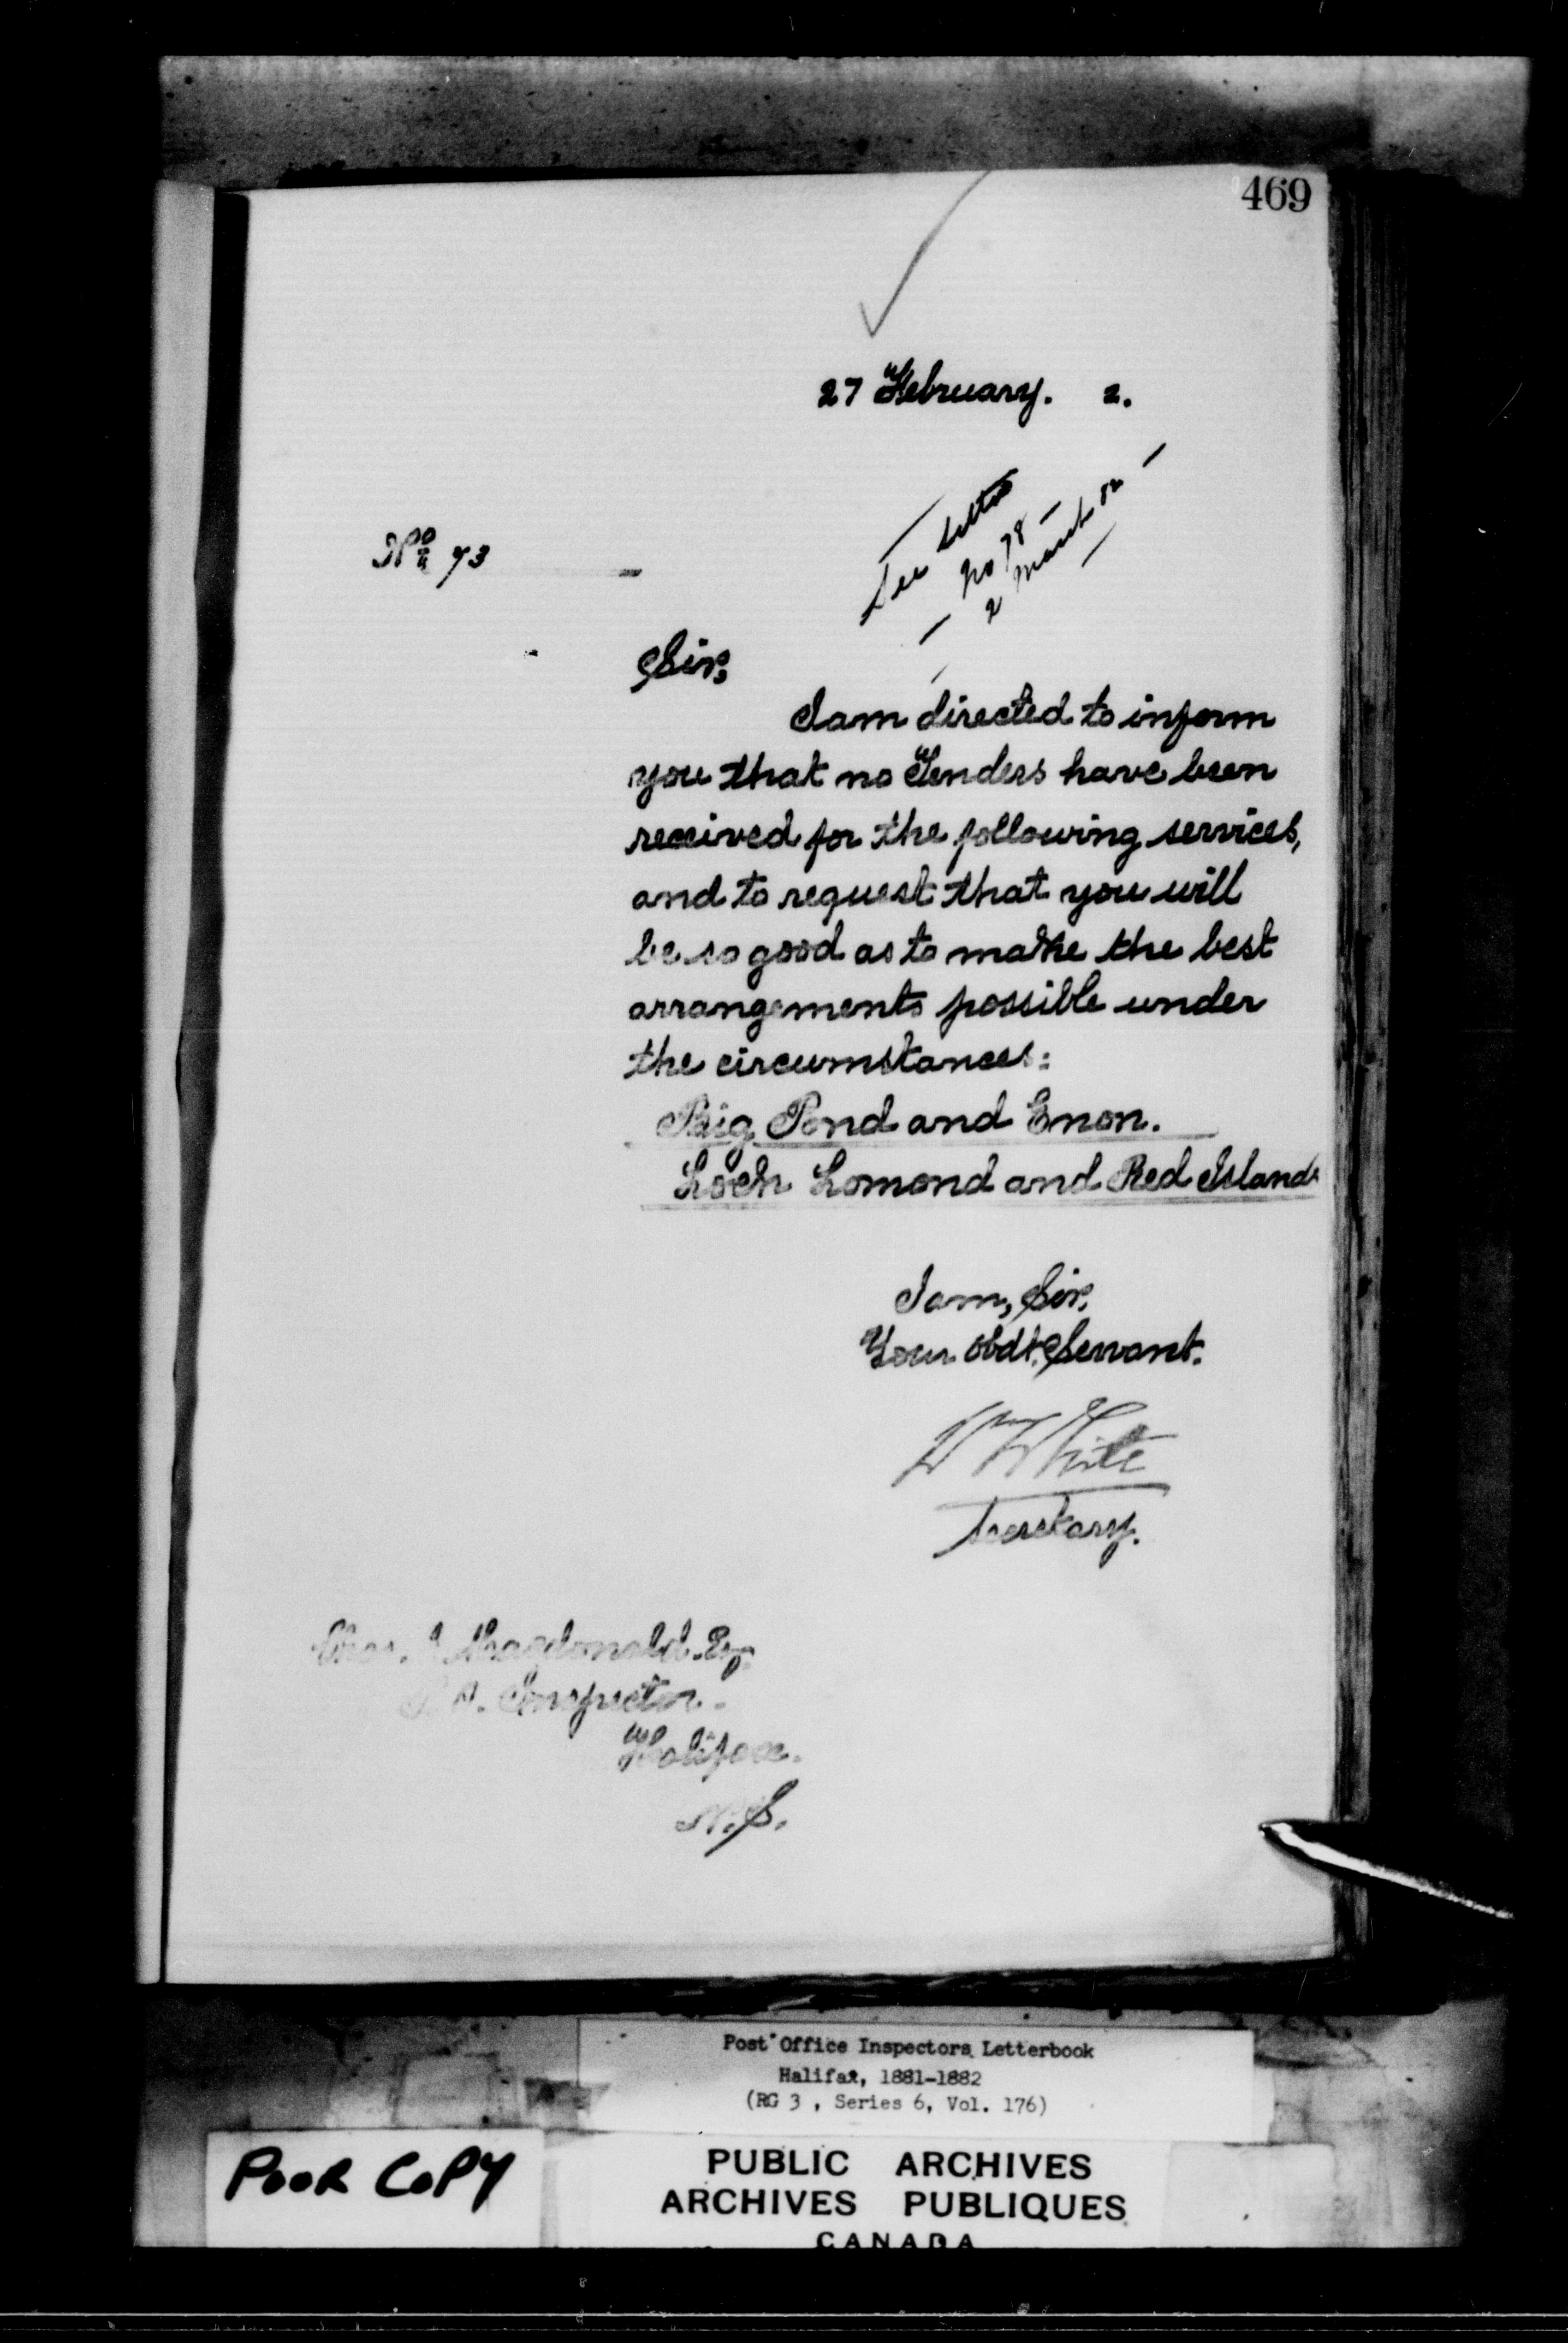 469
27 February. 2.
No 73
See Letter
No 78
2 March 82
Sir,
I am directed to inform
you that no Tenders have been
received for the following services,
and to request that you will
be so good as to make the best
arrangements possible under
the circumstances:
Big Pond and Enon.
Loch Lomond and Red Islands
I am, Sir,
Your obdt. Servant.
W White
Secretary.
Chas. J Macdonald. Esq
P.O. Inspector.
Halifax.
N.S.
Post Office Inspectors Letterbook
Halifax, 1881-1882
(RG 3 , Series 6, Vol. 176)
POOR COPY
PUBLIC ARCHIVES
ARCHIVES PUBLIQUES
CANADA